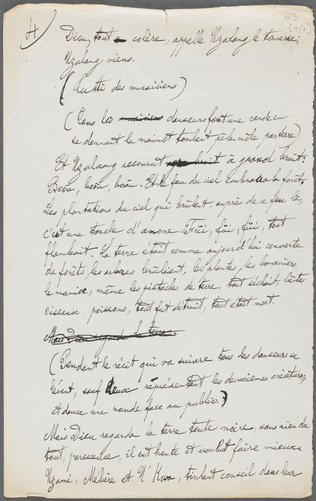 4/
Dieu, tout colère, appelle Nzalang le tonnerre
Nzalang viens.
(Suite des musiciens)
(Tous les danseurs font une ronde en
se donnant la main et tombent pêle mêle par terre)
Et Nzalang accourait à grand bruit.
Boôu, boôu, boôu. Et le feu du ciel embrasa la forêt.
Les plantations du ciel qui brûlent, auprès de ce feu là,
c'est une torche d'amone fûi, fûi, fûi, tout
flambait. La terre était comme aujourd'hui couverte
de forêts les arbres brûlaient, les plantes, les bananiers,
le manioc, même les pistaches de terre, tout séchait, bêtes
oiseaux, poissons, tout fut détruit, tout était mort.
(Pendant le récit qui va suivre tous les danseurs se
lèvent, sauf deux représentant les dernières créatures,
et danse une ronde face au public.)
Mais Dieu regarda la terre toute noire, sans rien du
tout, paresseuse, il eut honte et voulut faire mieux.
Nzame, Mebère et N'Kwa, tinrent conseil dans leur